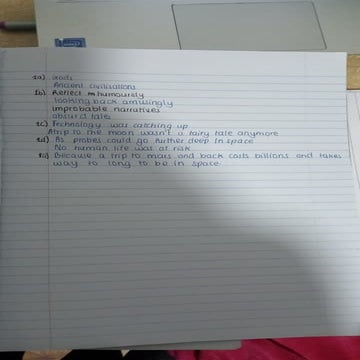 1a) Gods
Ancient civilisations
1b) Reflect humourely
looking back amusingly
improbable narratives
absurd tale
1c) Technology was catching up
A trip to the moon wasn't a fairy tale anymore
1d) As probes could go further deep in space
No human life was at risk
1e) Because a trip to mars and back costs billions and takes
way to long to be in space